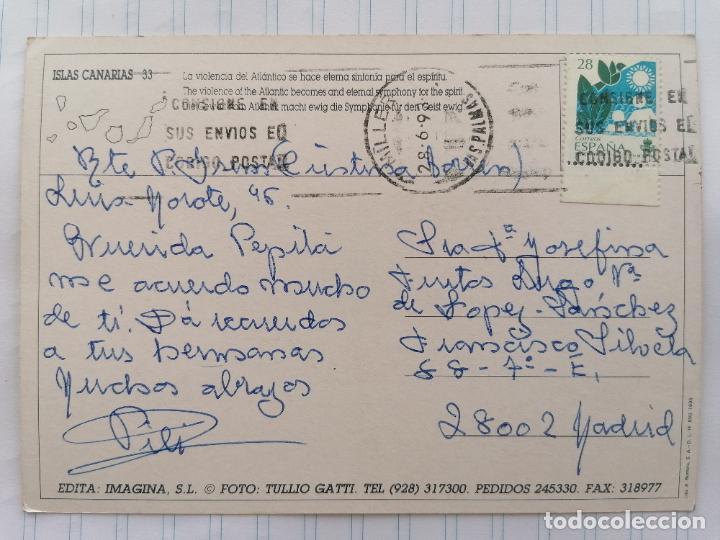 ISLAS CANARIAS 33
La violencia del Atlántico se hace eterna sinfonía para el espíritu.
The violence of the Atlantic becomes and eternal symphony for the spirit.
Atlantic machi ewig die Symphonie für den Geist ewig
CONSIGNE EN
SUS ENVIOS EL
CODIGO POSTAL
MILLER
28-6-9
28
Correos
ESPAÑA
CONSIGNE EN
SUS ENVIOS EL
CODIGO POSTAL
Rte
Cristina
Luis Morote, 46.
Querida Pepita
me acuerdo mucho
de ti. Dá recuerdos
a tus hermanas
Muchos abrazos
Pili
Sra Dª Josefina
de Lopez-Sánchez
Francisco Silvela
- 7º - E,
28002 Madrid
EDITA: IMAGINA, S.L. © FOTO: TULLIO GATTI. TEL (928) 317300. PEDIDOS 245330. FAX: 318977
todocoleccion
todocoleccion.net